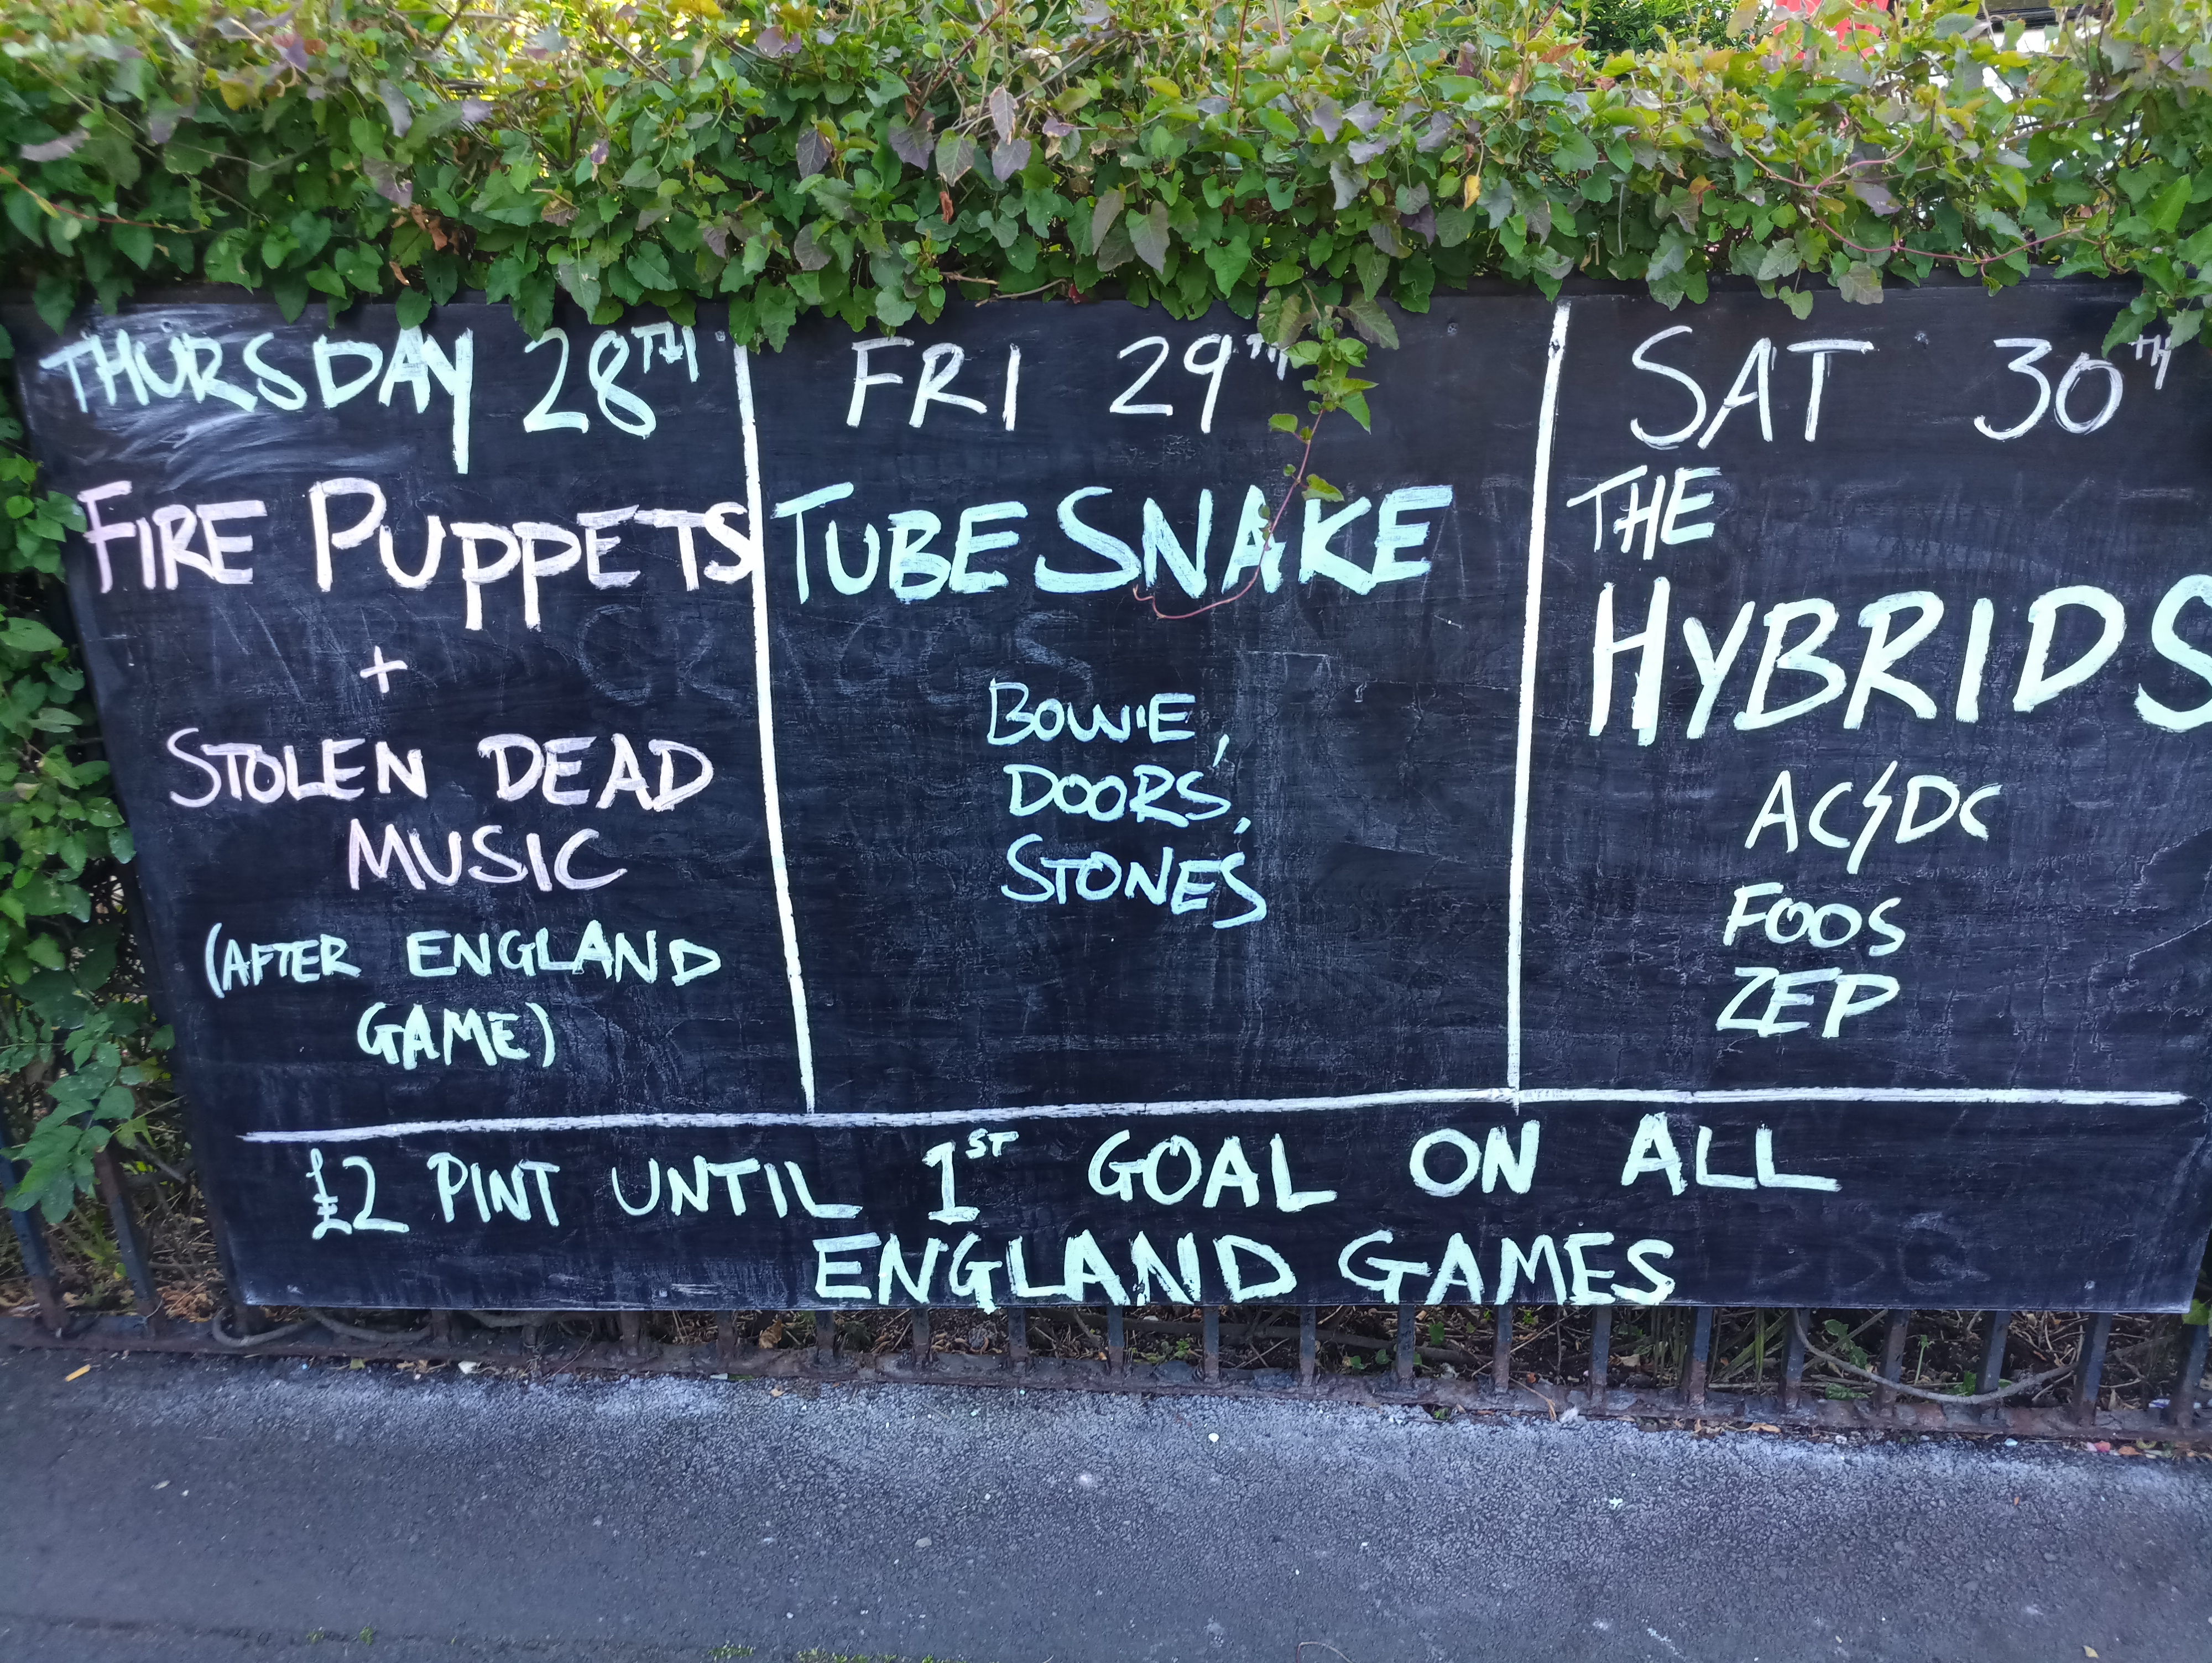 THURSDAY 28TH
FIRE PUPPETS
+
STOLEN DEAD
MUSIC
(AFTER ENGLAND
GAME)
FRI 29TH
TUBESNAKE
BOWIE,
DOORS,
STONES
SAT 30TH
THE
HYBRIDS
AC⚡DC
FOOS
ZEP
£2 PINT UNTIL 1ST GOAL ON ALL
ENGLAND GAMES